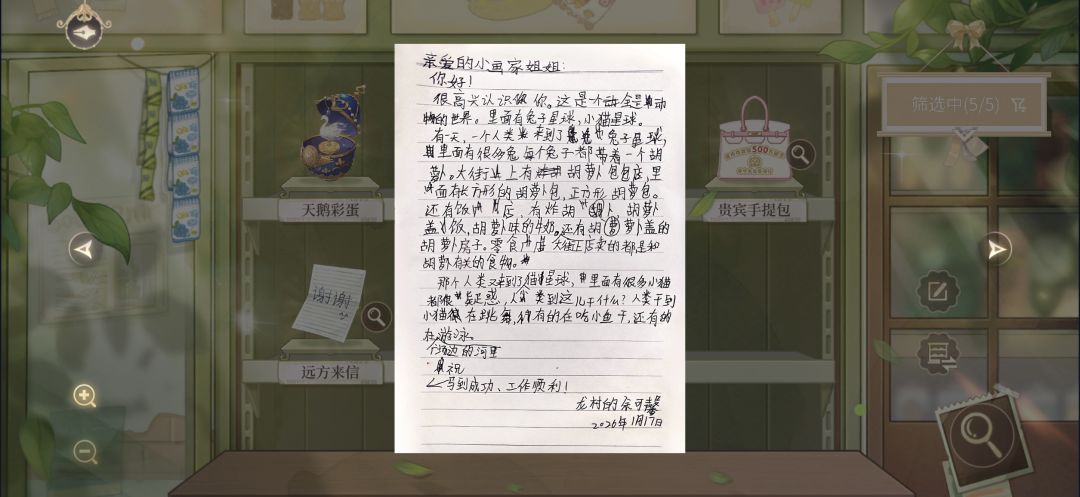 亲爱的小画家姐姐:
你好!
很高兴认识你。这是一个全是动
物的世界。里面有兔子星球,小猫星球。
有一天,一个人类来到了兔子星球,
里面有很多兔每个兔子都带着一个胡
萝卜。大街上有胡萝卜包包店,里
面有长方形的胡萝卜包,正方形胡萝卜包。
还有饭店,有炸胡萝卜,胡萝卜
盖饭,胡萝卜味的牛奶。还有胡萝卜盖的
胡萝卜房子。零食店大街正店卖的都是和
胡萝卜有关的食物。
那个人类又来到了猫星球,里面有很多小猫
都很疑惑,人类到这儿干什么?人类干到
小猫在跳舞,有的在吃小鱼干,还有的
在游泳。
个河边的河里
祝
马到成功、工作顺利!
龙村的余可馨
2026年1月17日
筛选中(5/5)
天鹅彩蛋
贵宾手提包
500
谢谢
远方来信